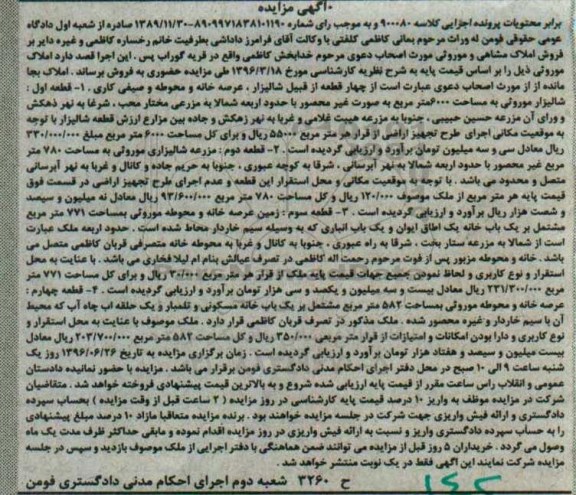 آگهی مزایده
برابر محتویات پرونده اجرایی کلاسه ۹۰۰۰۸۰ و به موجب رای شماره ۸۹۰۹۹۷۱۸۳۸۱۰۱۱۹۰-۱۳۸۹/۱۱/۳۰ صادره از شعبه اول دادگاه
عومی حقوقی فومن له وراث مرحوم بمانی کاظمی کلفتی با وکالت آقای فرامرز داداشی بطرفیت خانم رخساره کاظمی و غیره دایر بر
فروش املاک مشاهی و موروثی مورث اصحاب دعوی مرحوم خدابخش کاظمی واقع در قریه گوراب پس . این اجرا قصد دارد املاک
موروثی ذیل را بر اساس قیمت پایه به شرح نظریه کارشناسی مورخ ۱۳۹۶/۳/۱۸ طی مزایده حضوری به فروش برساند . املاک بجا
مانده از از مورث اصحاب دعوی عبارت است از چهار قطعه از قبیل شالیزار ، عرصه خانه و محوطه و صیفی کاری . ۱- قطعه اول :
شالیزار موروثی به مساحت ۶۰۰۰متر مربع به صورت غیر محصور با حدود اربعه شمالا به مزرعی مختار محب ، شرقا به نهر ذهکش
و ورای آن مزرعه حسین حبیبی ، جنوبا به مزرعه هیبت غلامی و غربا به نهر زهکش و جاده بین مزارع ارزش قطعه شالیزار با توجه
به موقعیت مکانی اجرای طرح تجهیز اراضی از قرار هر متر مربع ۵۵۰۰۰ ریال و برای کل مساحت ۶۰۰۰ متر مربع مبلغ ۳۳۰/۰۰۰/۰۰۰
ریال معادل سی و سه میلیون تومان برآورد و ارزیابی گردیده است . ۲- قطعه دوم : مزرعه شالیزاری موروثی به مساحت ۷۸۰ متر
مربع غیر محصور با حدود اربعه شمالا به نهر آبرسانی ، شرقا به کوچه عبوری ، جنوبا به حریم جاده و کانال و غربا به نهر آبرسانی
متصل و محدود می باشد . با توجه به موقعیت مکانی و محل استقرار این قطعه و عدم اجرای طرح تجهیز اراضی در قسمت فوق
قیمت پایه هر متر مربع از ملک موصوف ۱۲۰/۰۰۰ ریال و کل مساحت ۷۸۰ متر مربع ۹۳/۶۰۰/۰۰۰ ریال معادل نه میلیون و سیصد
و شصت هزار ریال برآورد و ارزیابی گردیده است . ۳- قطعه سوم : زمین عرصه خانه و محوطه موروثی بمساحت ۷۷۱ متر مربع
مشتمل بر یک باب خانه یک اطاق ایوان و یک باب انباری که به وسیله سیم خاردار محاط شده است . حدود اربعه ملک عبارت
است از شمالا به مزرعه ستار بخت ، شرقا به راه عبوری ، جنوبا به کانال و غربا به محوطه خانه متصرفی قربان کاظمی متصل می
باشد . خانه و محوطه مزبور پس از فوت مرحوم رحمت اله کاظمی در تصرف عیالش بنام ام لیلا فخاری می باشد . با عنایت به محل
استقرار و نوع کاربری و لحاظ نمودن جمیع جهات قیمت پایه ملک از قرار هر متر مربع ۳۰۰/۰۰۰ ریال و برای کل مساحت ۷۷۱ متر
مربع ۲۳۱/۳۰۰/۰۰۰ ریال معادل بیست و سه میلیون و یکصد و سی هزار تومان برآورد و ارزیابی گردیده است . ۴- قطعه چهارم :
عرصه خانه و محوطه موروثی بمساحت ۵۸۲ متر مربع مشتمل بر یک باب خانه مسکونی و تلمبار و یک حلقه اب چاه آب که محیط
آن با سیم خاردار و غیره محصور شده . ملک مذکور در تصرف قربان کاظمی قرار دارد . ملک موصوف با عنایت به محل استقرار و
نوع کاربری و دارا بودن امکانات و امتیازات از قرار متر مربعی ۳۵۰/۰۰۰ ریال و کل مساحت ۵۸۲ متر مربع ۲۰۳/۷۰۰/۰۰۰ ریال معادل
بیست میلیون و سیصد و هفتاد هزار تومان برآورد و ارزیابی گردیده است . زمان برگزاری مزایده به تاریخ ۱۳۹۶/۰۶/۲۶ روز یک
شنبه ساعت ۹ الی ۱۰ صبح در محل دفتر اجرای احکام مدنی دادگستری فومن برقرار می باشد . مزایده با حضور نمائیده دادستان
عمومی و انقلاب راس ساعت مقرر از قیمت پایه ارزیابی شده شروع و به بالاترین قیمت پیشنهادی فروخته خواهد شد . متقاضیان
شرکت در مزایده موظف به واریز ۱۰ درصد قیمت پایه کارشناسی در روز مزایده ( ۲ ساعت قبل از وقت مزایده ) بحساب سپرده
دادگستری و ارائه فیش واریزی جهت شرکت در جلسه مزایده خواهند بود . برنده مزایده متعاقبا مازاد ۱۰ درصد مبلغ پیشنهادی
را به حساب سپرده دادگستری واریز و نسبت به ارائه فیش واریزی در روز مزایده اقدام نموده و مابقی حداکثر ظرف مدت یک ماه
وصول می گردد . خریداران ۵ روز قبل از مزایده می توانند ضمن هماهنگی با دفتر اجرایی از ملک موصوف بازدید و سپس در جلسه
مزایده شرکت نمایند این آگهی فقط در یک نوبت منتشر خواهد شد .
ح ۳۲۶۰ شعبه دوم اجرای احکام مدنی دادگستری فومن